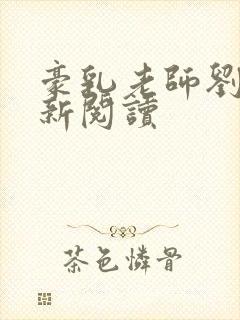 豪乳老師劉
新閱讀
茶色憐骨